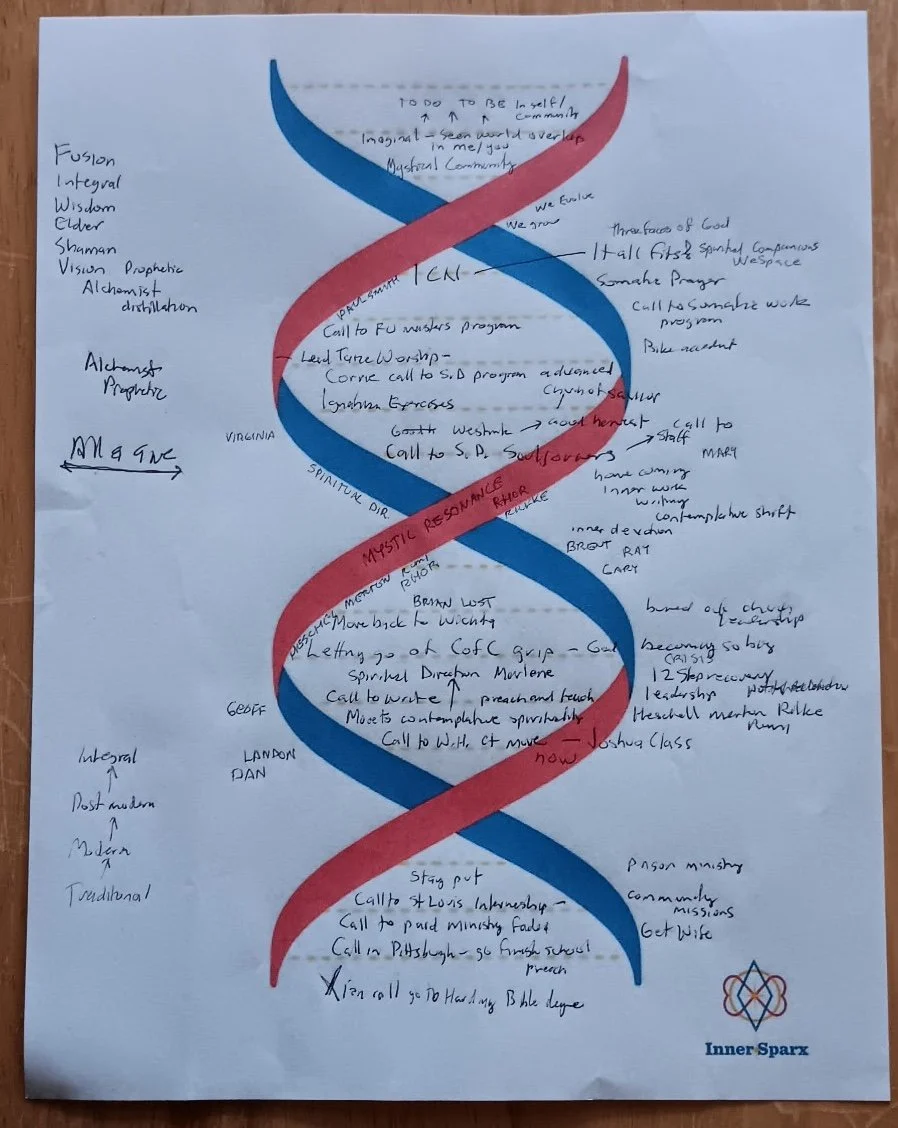 TO DO TO BE In self/
community
Imaginal - seen world overlap
in me/you
Mystical Community
We Evolve
We grow
Fusion
Integral
Wisdom
Elder
Shaman
Vision Prophetic
Alchemist
distillation
Three faces of God
It all fits & Spiritual Companions
WeSpace
ICN
PAUL SMITH
Somatic Prayer
Call to Somatic work
program
Bike accident
Call to FU masters program
Lead Taize Worship -
Corrie call to S.D program advanced
Ignatian Exercises
Alchemist
Prophetic
All is one
VIRGINIA
Westlink → Good harvest
Call to S.D. Soulforners
call to
staff
MARY
SPIRITUAL DIR.
MYSTIC RESONANCE
RHOR
RILKE
home coming
Inner work
writing
contemplative shift
inner devotion
BRENT RAY
GARY
HESSCHEL MERTON RUMI
RHOR
BRIAN LOST
Move back to Wichita
Letting go of CofC grip - God
Spiritual Direction Marlene
Call to write preach and teach
Move to contemplative spirituality
Call to W.H. Ct move - Joshua Class
now
burned out church
leadership
becoming so big
CRISIS
12 Step recovery
leadership
Heschell Merton Rilke
Rumi
GEOFF
LANDON
DAN
Integral
Post modern
Modern
Traditional
Stay put
Call to St Louis Internship -
Call to paid ministry faded
Call in Pittsburgh - go finish school
preach
Xian call go to Harding Bible degree
Prison ministry
community
missions
Get Wife
Inner Sparx